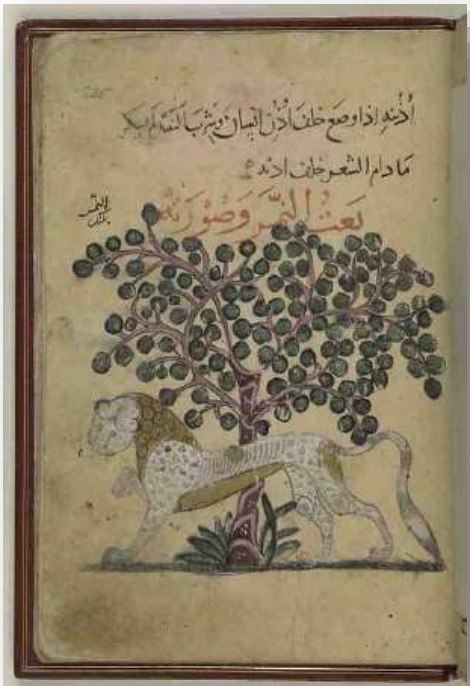 أُذنه اذا وضع خلف اُذن انسان وشرب النبيذ لم يسكر
ما دام الشعر خلف اذنه
نعت النمر وصورته
النمر